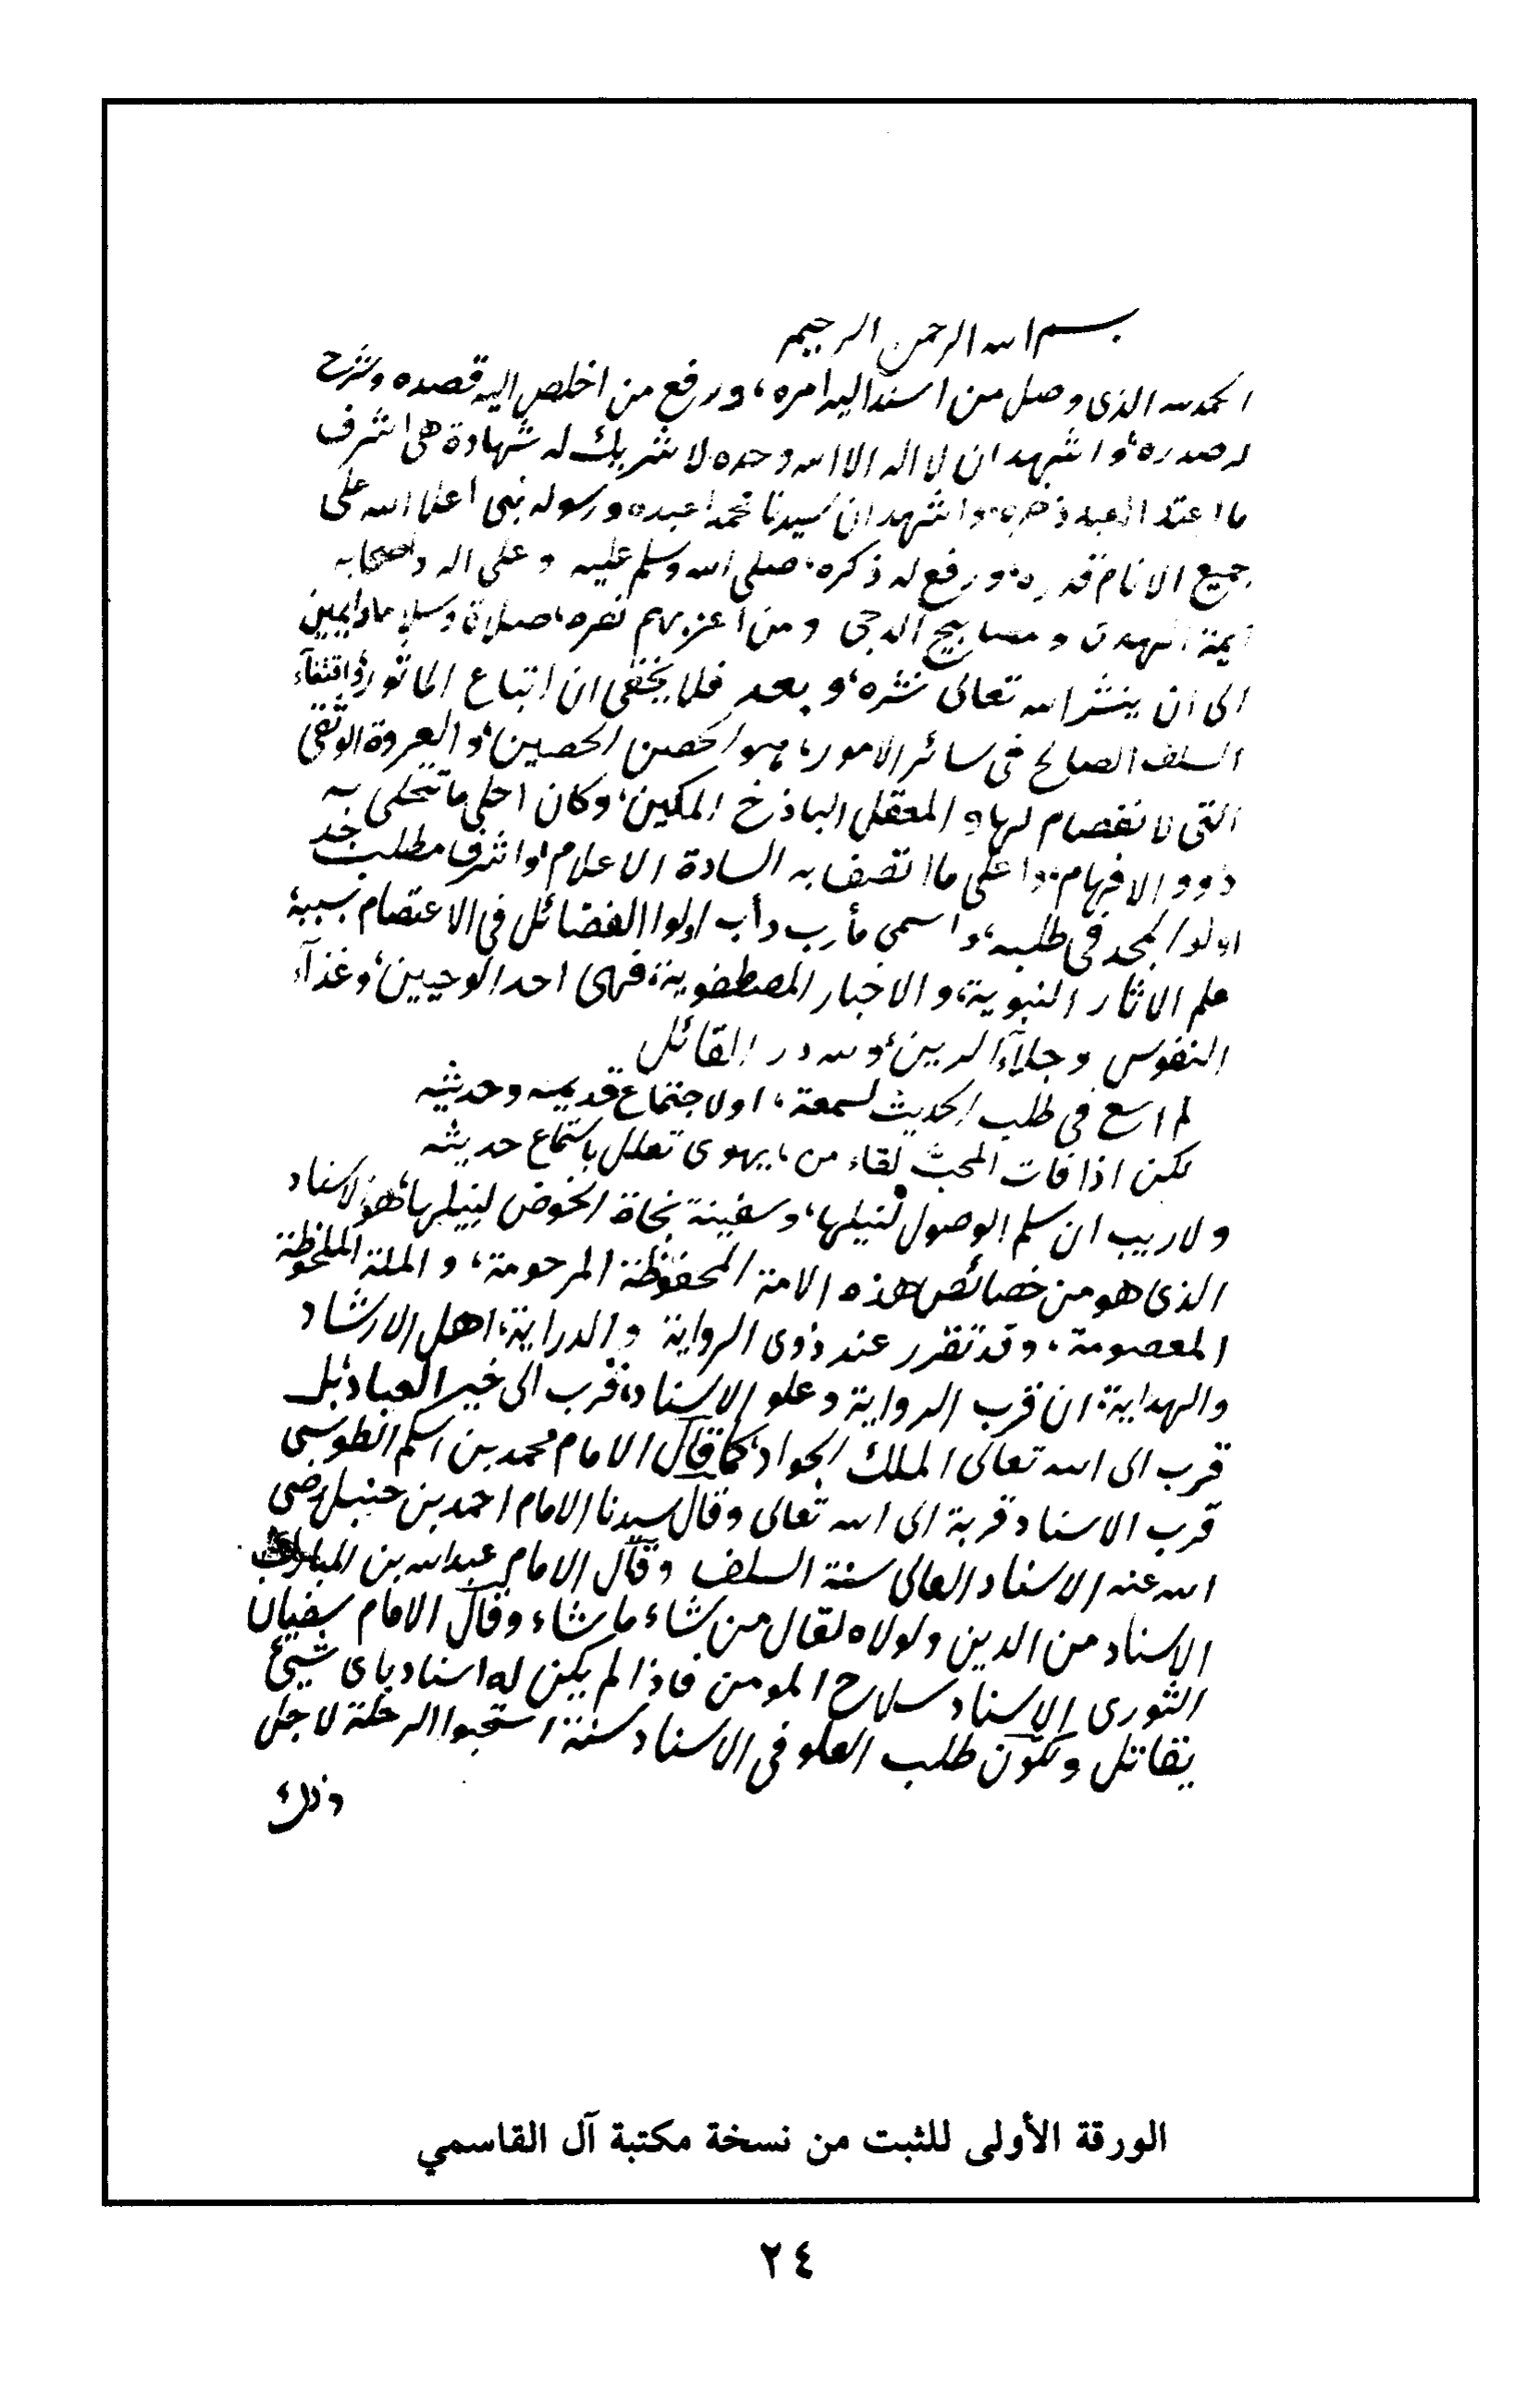 بسم الله الرحمن الرحيم
الحمد لله الذى وصل من اسند اليه امره، ورفع من اخلص اليه قصده وشرح
له صدره، واشهد ان لا اله الا الله وحده لا شريك له شهادة هى اشرف
ما اعتد العبد ذخره، واشهد ان سيدنا محمدا عبده ورسوله نبى اعلا الله على
جميع الانام قدره، ورفع له ذكره، صلى الله وسلم عليه وعلى اله واصحابه
ايمة الهدى ومصابيح الدجى ومن اعز بهم نصره، صلاة وسلاما دايمين
الى ان ينشر الله تعالى نشره، وبعد فلا يخفى ان اتباع الماثور، واقتفآء
السلف الصالح فى سائر الامور، هو الحصن الحصين، والعروة الوثقى
التى لا نفصام لها، والمعقل الباذخ المكين، وكان احلى ما تتحلى به
ذوو الافهام، واعلى ما اتصف به السادة الاعلام، واشرف مطلب جد
اولو المجد فى طلبه، واسمى مأرب دأب اولوا الفضائل فى الاعتصام بسببه
علم الاثار النبوية، والاخبار المصطفوية، فهى احد الوحيين، وغذآء
النفوس وجلآء الرين، ولله در القائل
لم اسع فى طلب الحديث لسمعة، او لاجتماع قديمه وحديثه
لكن اذا فات المحب لقاء من، يهوى تعلل باستماع حديثه
ولا ريب ان سلم الوصول لنيلها، وسفينة نجاة الخوض لنيلها، هو الاسناد
الذى هو من خصائص هذه الامة المحفوظة المرحومة، والملة الملحوظة
المعصومة، وقد تقرر عند ذوى الرواية والدراية، اهل الارشاد
والهداية، ان قرب الرواية وعلو الاسناد، قرب الى خير العباد، بل
قرب الى الله تعالى الملك الجواد، كما قال الامام محمد بن اسلم الطوسى
قرب الاسناد قربة الى الله تعالى وقال سيدنا الامام احمد بن حنبل رضى
الله عنه الاسناد العالى سنة السلف وقال الامام عبد الله بن المبارك
الاسناد من الدين ولولاه لقال من شاء ما شاء وقال الامام سفيان
الثورى الاسناد سلاح المومن فاذا لم يكن له اسناد باى شيئ
يقاتل ولكون طلب العلو فى الاسناد سنة استحبوا الرحلة لاجل
ذلك
الورقة الأولى للثبت من نسخة مكتبة آل القاسمي
٢٤